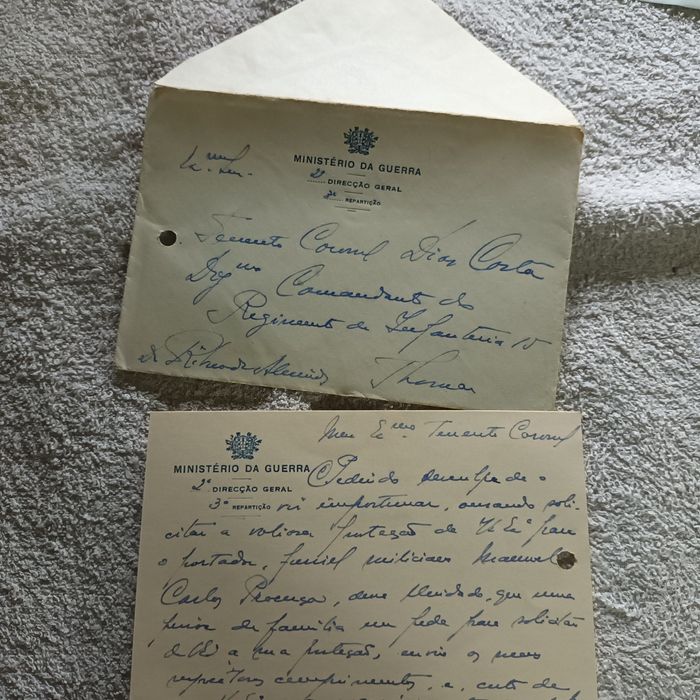 MINISTÉRIO DA GUERRA
2ª DIRECÇÃO GERAL
3ª REPARTIÇÃO
Tenente Coronel Dias Costa
Digmo Comandante do
Regimento de Infantaria 15
Thomar
Meu Exmo Tenente Coronel
MINISTÉRIO DA GUERRA
2ª DIRECÇÃO GERAL
3ª REPARTIÇÃO
Pedindo desculpa de o
vir importunar, ousando soli-
citar a valiosa protecção de V. Exª para
o portador, furriel miliciano Manuel
Carlos Proença, deve
de família me pede para solicitar
de V. Exª a sua protecção, envio os meus
respeitosos cumprimentos, e, certo de